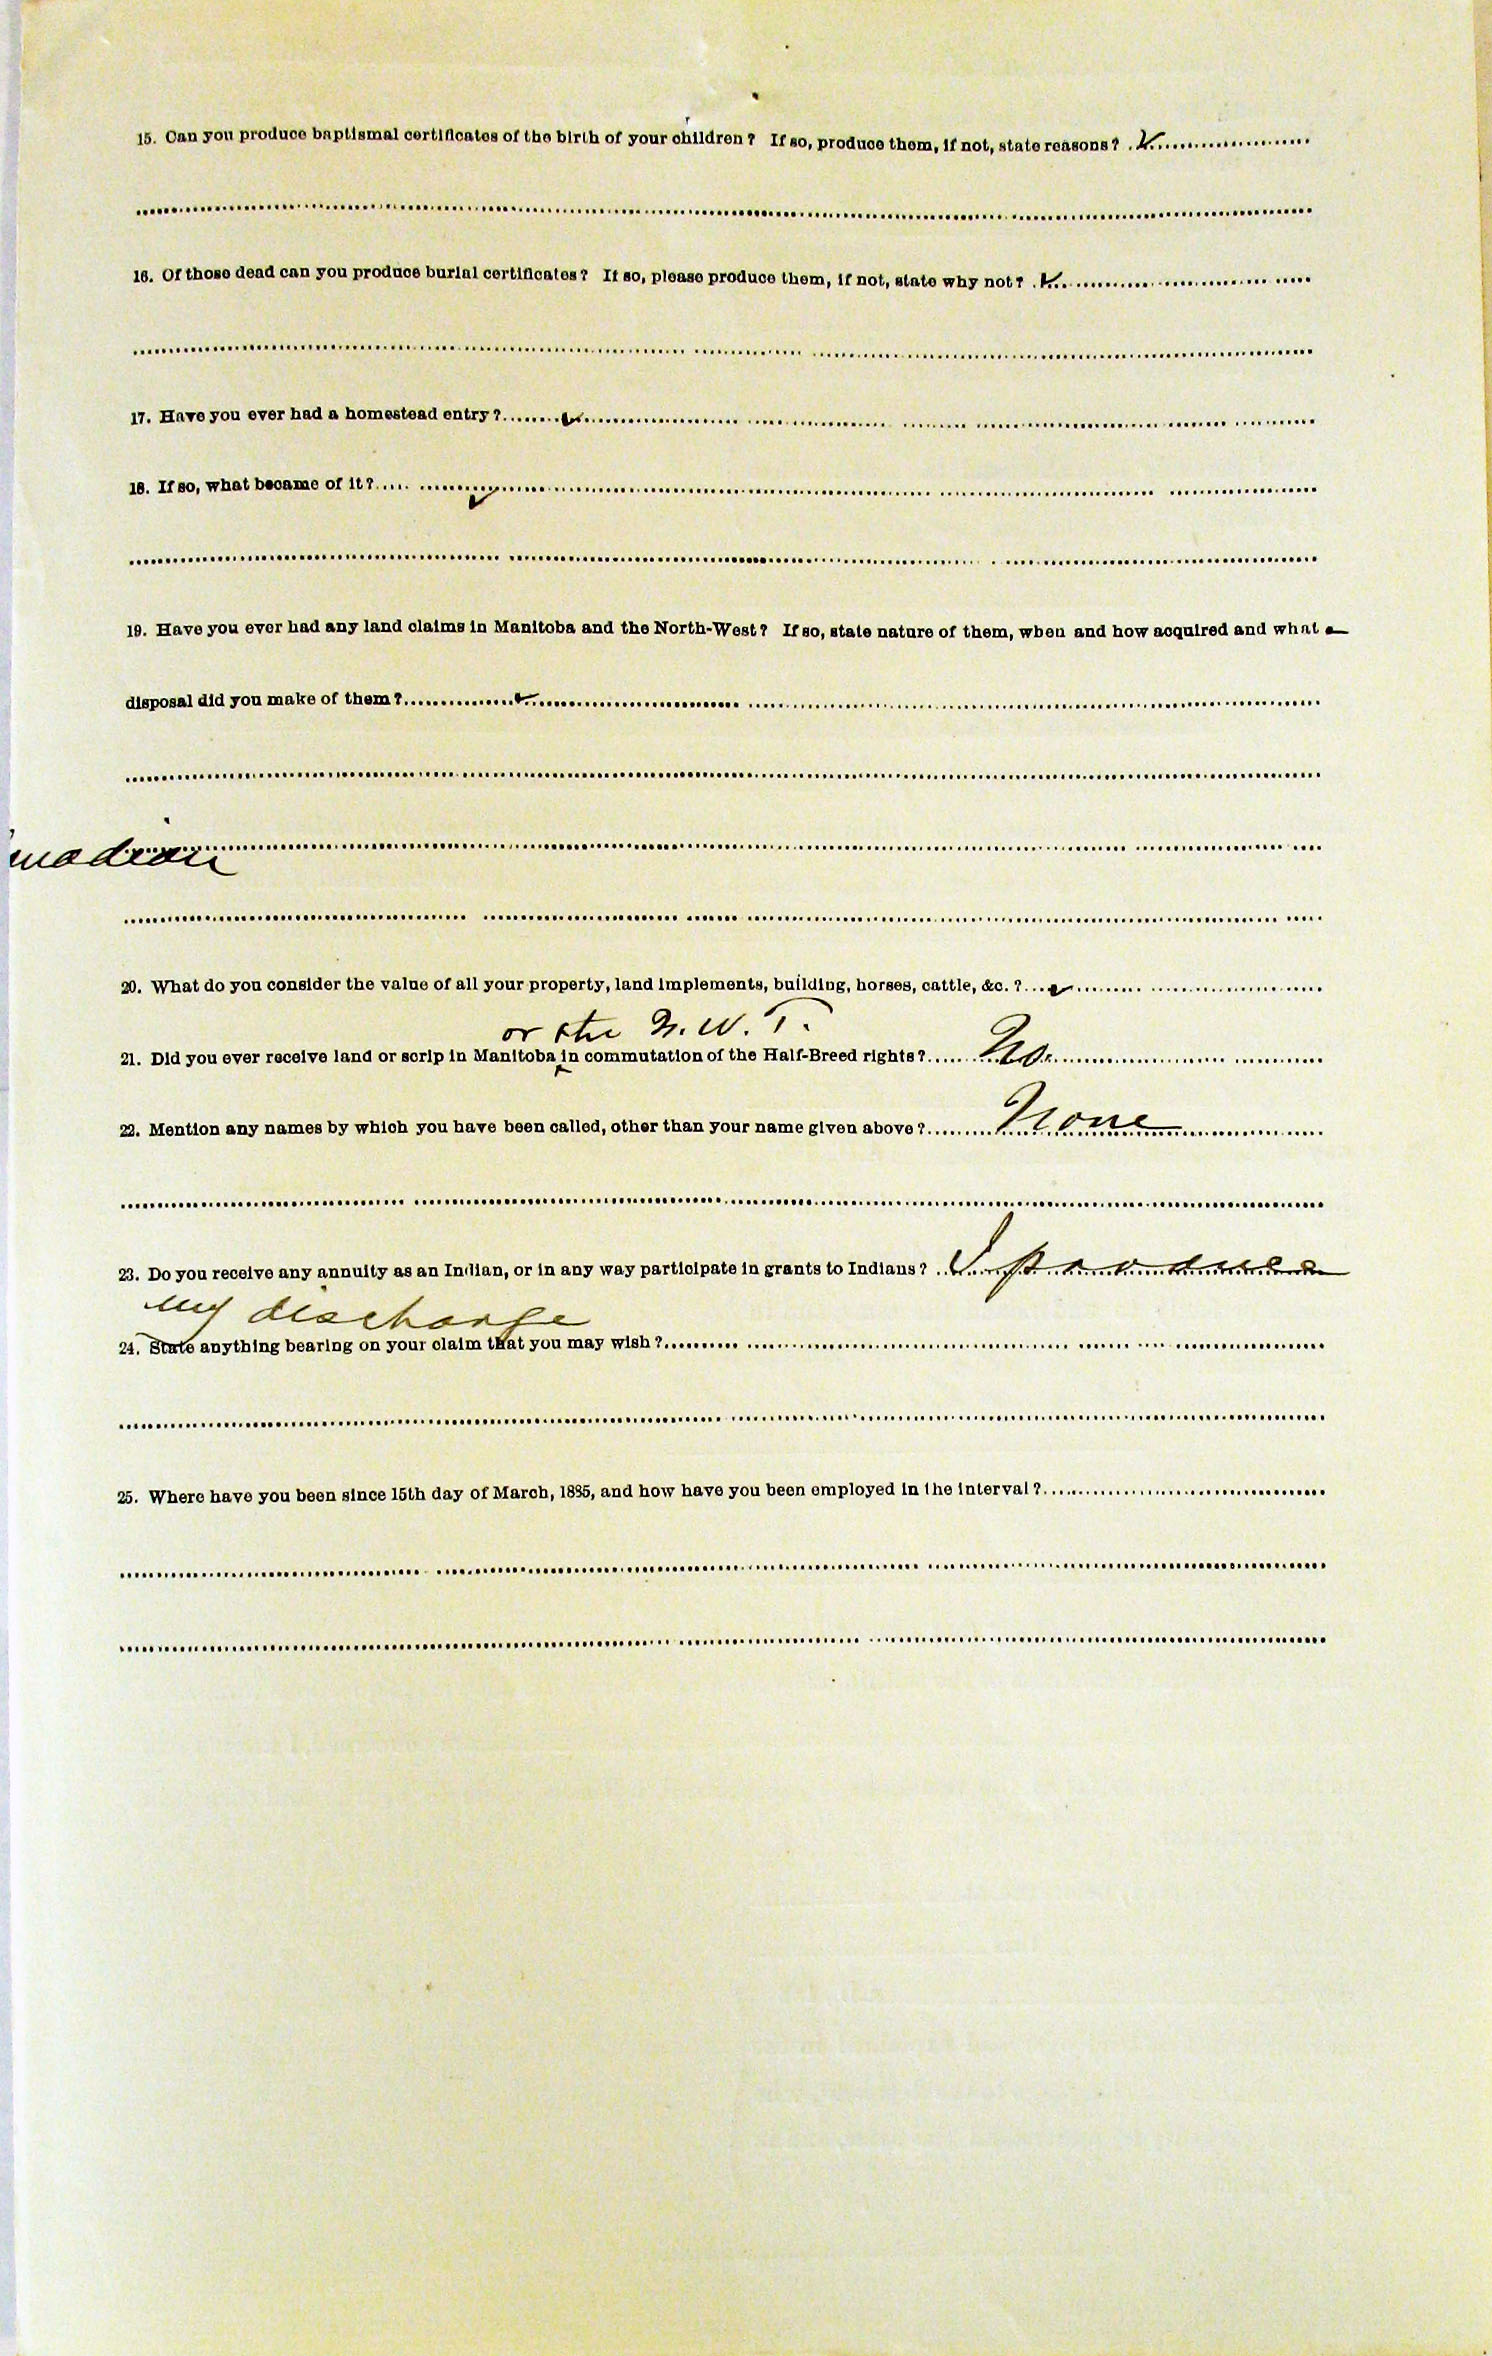 15. Can you produce baptismal certificates of the birth of your children? If so, produce them, if not, state reasons?
16. Of those dead can you produce burial certificates? If so, please produce them, if not, state why not?
17. Have you ever had a homestead entry?
18. If so, what became of it?
19. Have you ever had any land claims in Manitoba and the North-West? If so, state nature of them, when and how acquired and what
disposal did you make of them?
nadian
20. What do you consider the value of all your property, land implements, building, horses, cattle, &c.?
or the N.W.T.
21. Did you ever receive land or scrip in Manitoba in commutation of the Half-Breed rights? No.
22. Mention any names by which you have been called, other than your name given above? None
23. Do you receive any annuity as an Indian, or in any way participate in grants to Indians? I produce
my discharge
24. State anything bearing on your claim that you may wish?
25. Where have you been since 15th day of March, 1885, and how have you been employed in the interval?